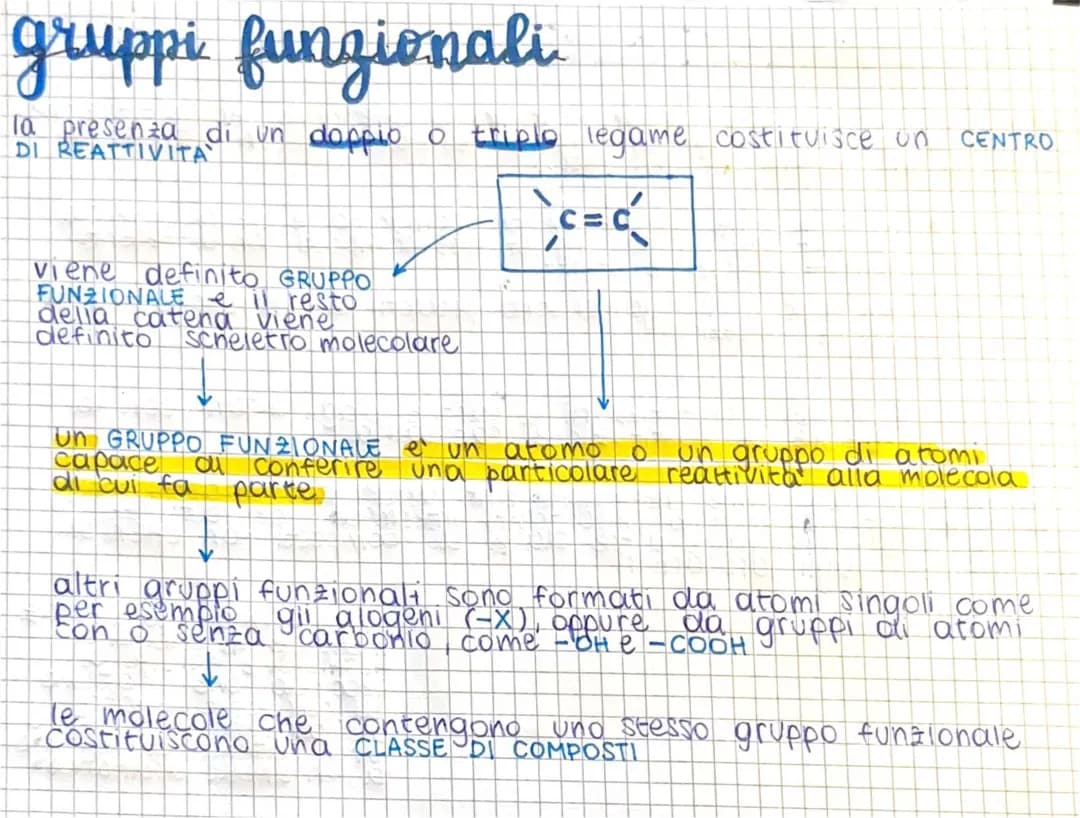 gruppi funzionali
la presenza di un doppio o triplo legame costituisce un CENTRO
DI REATTIVITA'
C=C
viene definito GRUPPO
FUNZIONALE e il resto
della catena viene
definito scheletro molecolare
un GRUPPO FUNZIONALE e' un atomo o un gruppo di atomi
capace di conferire una particolare reattività alla molecola
di cui fa parte
altri gruppi funzionali sono formati da atomi singoli come
per esempio gli alogeni (-X), oppure da gruppi di atomi
con o senza carbonio, come -OH e -COOH
le molecole che contengono uno stesso gruppo funzionale
costituiscono una CLASSE DI COMPOSTI